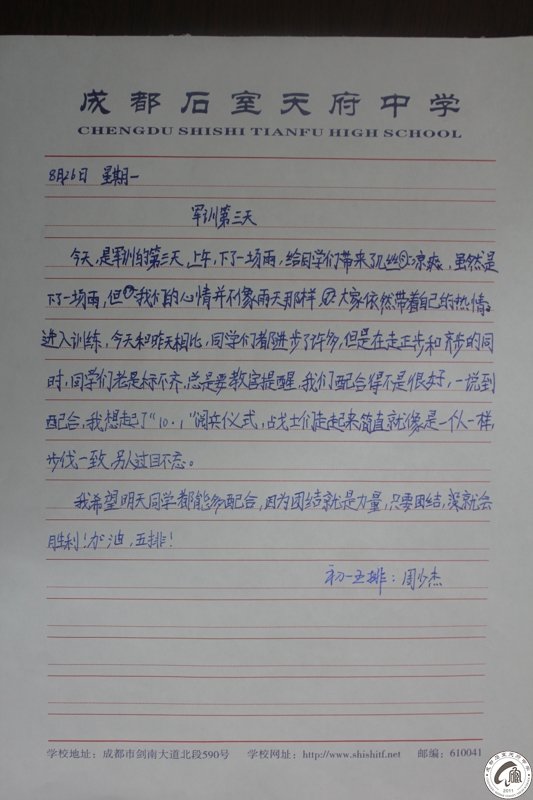 成都石室天府中学
CHENGDU SHISHI TIANFU HIGH SCHOOL
8月26日 星期一
军训第三天
今天,是军训的第三天,上午,下了一场雨,给同学们带来了几丝凉爽,虽然是
下了一场雨,但我们的心情并不像雨天那样,大家依然带着自己的热情
进入训练,今天和昨天相比,同学们都进步了许多,但是在走正步和齐步的同
时,同学们老是标不齐,总是要教官提醒,我们配合得不是很好,一说到
配合,我想起了"10·1"阅兵仪式,战士们走起来简直就像是一个人一样,
步伐一致,另人过目不忘。
我希望明天同学都能多配合,因为团结就是力量,只要团结,就会
胜利!加油,五排!
初一五排:周少杰
学校地址:成都市剑南大道北段590号 学校网址:http://www.shishitf.net 邮编:610041
2011